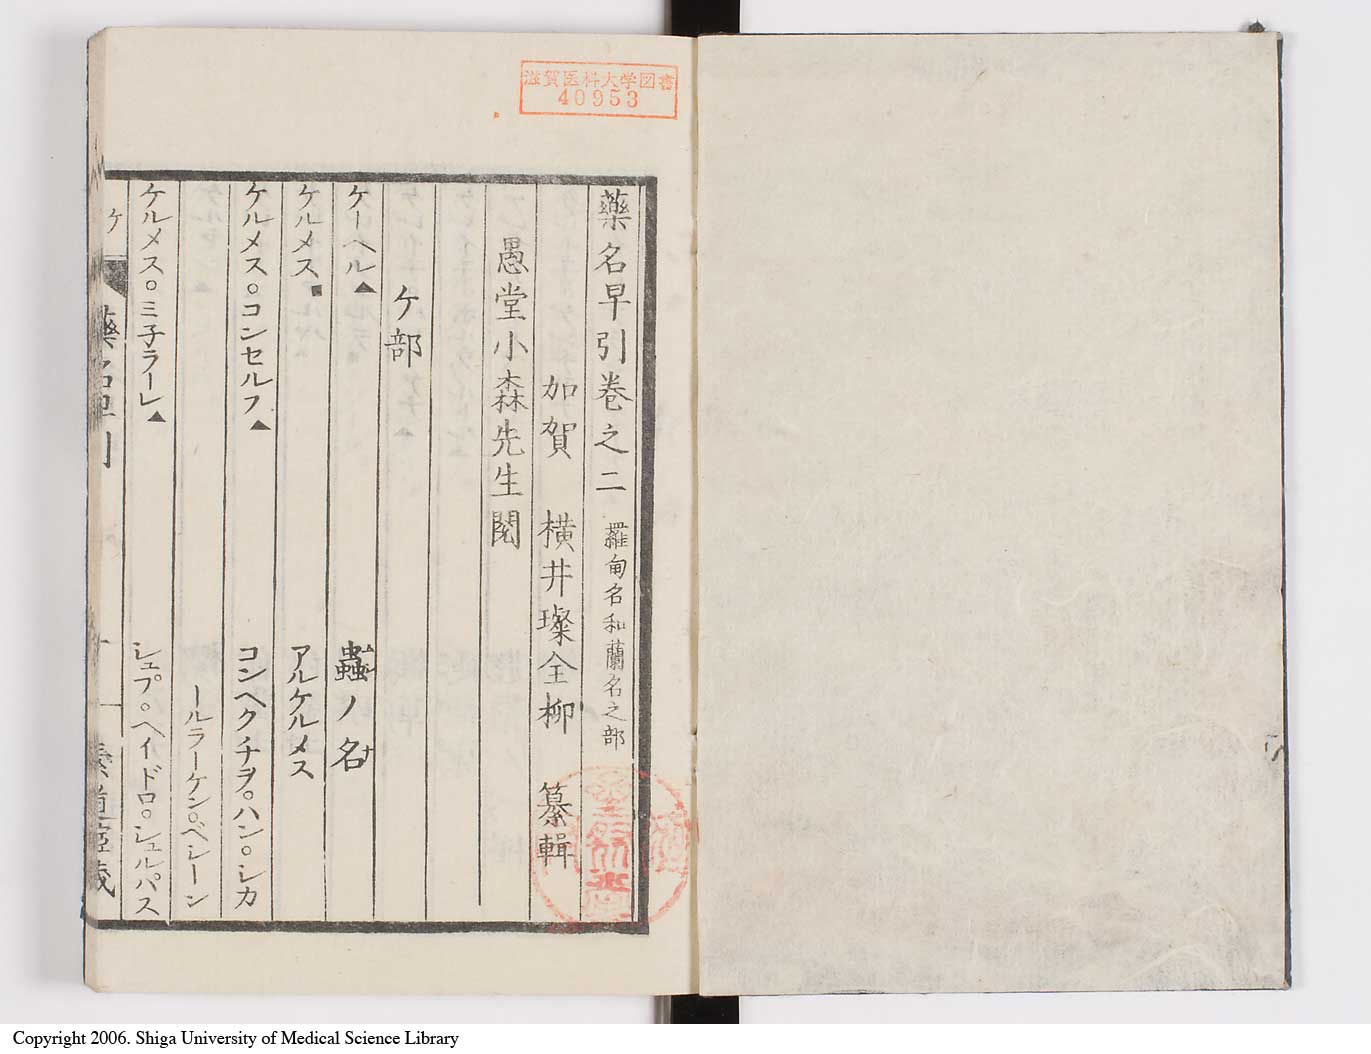 滋賀医科大学図書
40953
藥名早引巻之二 羅甸名和蘭名之部
加賀 横井璨全柳 纂輯
愚堂小森先生閲
ケ部
ケーヘル▲ 蟲ノ名ナ
ケルメス■ アルケルメス
ケルメス○コンセルフ▲ コンヘクチヲ○ハン○シカ
ールラーケン○ベシーン
ケルメス○ミ子ラーレ▲ シュプ○ヘイドロ○シュルパス
ケ
Copyright 2006. Shiga University of Medical Science Library